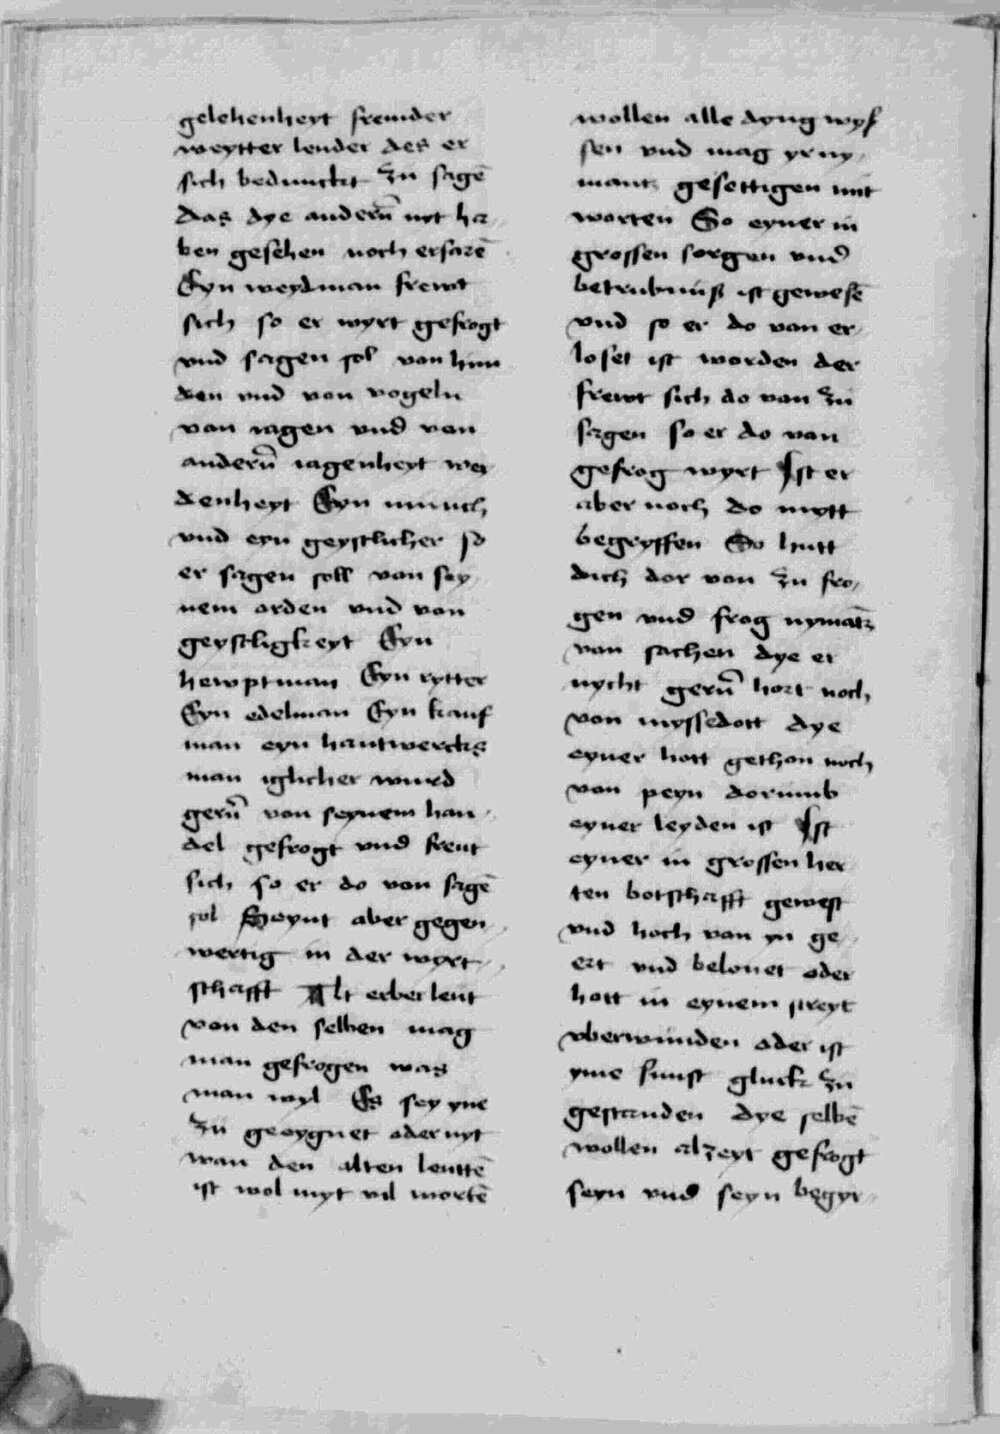 gelehenheyt fremder
weytter lender des er
sich bedunckt zu sagē
das dye andern̄ nyt ha
ben gesehen noch erfarē
Eyn weydman frewt
sich so er wyrt gefrogt
vnd sagen sol von hun
den vnd von vogeln
von iagen vnd von
andern̄ iagenheyt wey
denheyt Eyn munch
vnd eyn geystlicher so
er sagen soll von sey
nem orden vnd von
geystligkeyt Eyn
hewptman Eyn rytter
Eyn edelman Eyn kauf
man eyn hantwercks
man iglicher wurd
gern̄ von seynem han
del gefrogt vnd freut
sich so er do von sagē
sol Seynt aber gegen
wertig in der wyrt
schafft Alt erber leut
von den selben mag
man gefrogen was
man wyl Es sey yne
zu geeygnet oder nyt
wan den alten leuttē
ist wol myt vil wortē
wollen alle dyng wys
sen vnd mag yr ny
mantz gesettigen mit
worten So eyner in
grossen sorgen vnd
betrubniß ist gewesē
vnd so er do von er
loset ist worden der
frewt sich do von zu
sagen so er do von
gefrog wyrt Ist er
aber noch do mytt
begryffen So hutt
dich dor von zu fro
gen vnd frog nymātz
von sachen dye er
nycht gern̄ hort noch
von myssedott dye
eyner hott gethon noch
von peyn dorumb
eyner leyden ist Ist
eyner in grossen her
ren botschafft gewest
vnd hoch von yn ge
ert vnd belonet oder
hott in eynem streyt
vberwunden oder ist
yme sunst gluck zu
gestanden dye selbē
wollen alzeyt gefrogt
seyn vnd seyn begyr